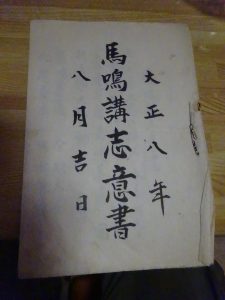 大正八年
馬鳴講志意書
八月吉日